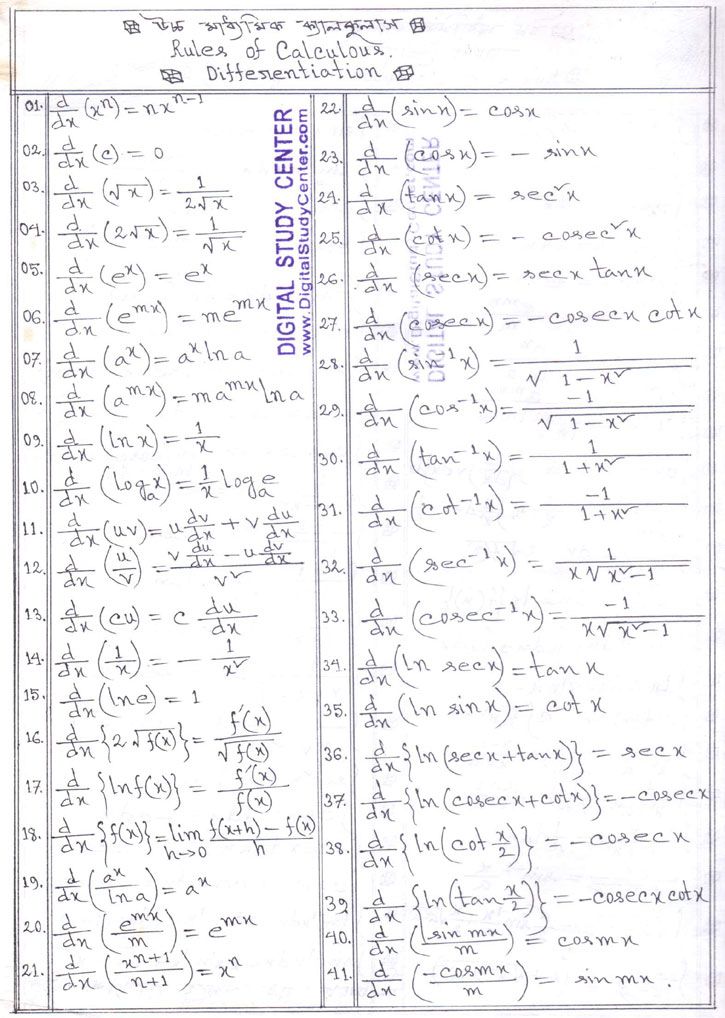 উচ্চ মাধ্যমিক ক্যালকুলাস
Rules of Calculous.
Differentiation
01. d/dx (xⁿ) = nxⁿ⁻¹
02. d/dx (c) = 0
03. d/dx (√x) = 1/2√x
04. d/dx (2√x) = 1/√x
05. d/dx (eˣ) = eˣ
06. d/dx (eᵐˣ) = meᵐˣ
07. d/dx (aˣ) = aˣ ln a
08. d/dx (aᵐˣ) = maᵐˣ ln a
09. d/dx (ln x) = 1/x
10. d/dx (logₐx) = 1/x logₐe
11. d/dx (uv) = u dv/dx + v du/dx
12. d/dx (u/v) = (v du/dx − u dv/dx)/v²
13. d/dx (cu) = c du/dx
14. d/dx (1/x) = − 1/x²
15. d/dx (ln e) = 1
16. d/dx {2√f(x)} = f′(x)/√f(x)
17. d/dx {ln f(x)} = f′(x)/f(x)
18. d/dx {f(x)} = lim h→0 (f(x+h) − f(x))/h
19. d/dx (aˣ/ln a) = aˣ
20. d/dx (eᵐˣ/m) = eᵐˣ
21. d/dx (xⁿ⁺¹/n+1) = xⁿ
DIGITAL STUDY CENTER
www.DigitalStudyCenter.com
22. d/dx (sin x) = cos x
23. d/dx (cos x) = − sin x
24. d/dx (tan x) = sec²x
25. d/dx (cot x) = − cosec²x
26. d/dx (sec x) = sec x tan x
27. d/dx (cosec x) = −cosec x cot x
28. d/dx (sin⁻¹x) = 1/√(1−x²)
29. d/dx (cos⁻¹x) = −1/√(1−x²)
30. d/dx (tan⁻¹x) = 1/(1+x²)
31. d/dx (cot⁻¹x) = −1/(1+x²)
32. d/dx (sec⁻¹x) = 1/x√(x²−1)
33. d/dx (cosec⁻¹x) = −1/x√(x²−1)
34. d/dx (ln sec x) = tan x
35. d/dx (ln sin x) = cot x
36. d/dx {ln(sec x + tan x)} = sec x
37. d/dx {ln(cosec x + cot x)} = −cosec x
38. d/dx {ln(cot x/2)} = −cosec x
39. d/dx {ln(tan x/2)} = −cosec x cot x
40. d/dx (sin mx/m) = cos mx
41. d/dx (−cos mx/m) = sin mx.